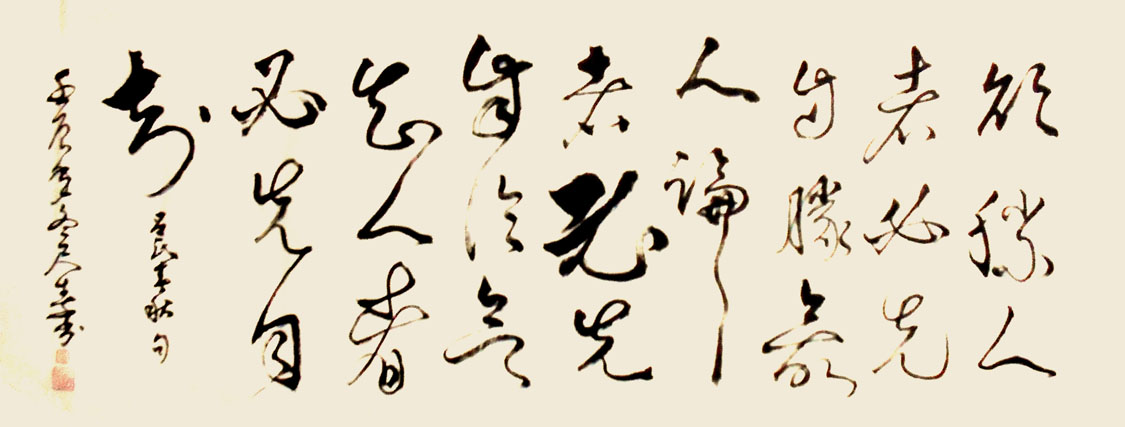 欲勝人
者必先
自勝欲
人論
者必先
自論欲
知人者
必先自
知 呂氏春秋句
壬辰冬書